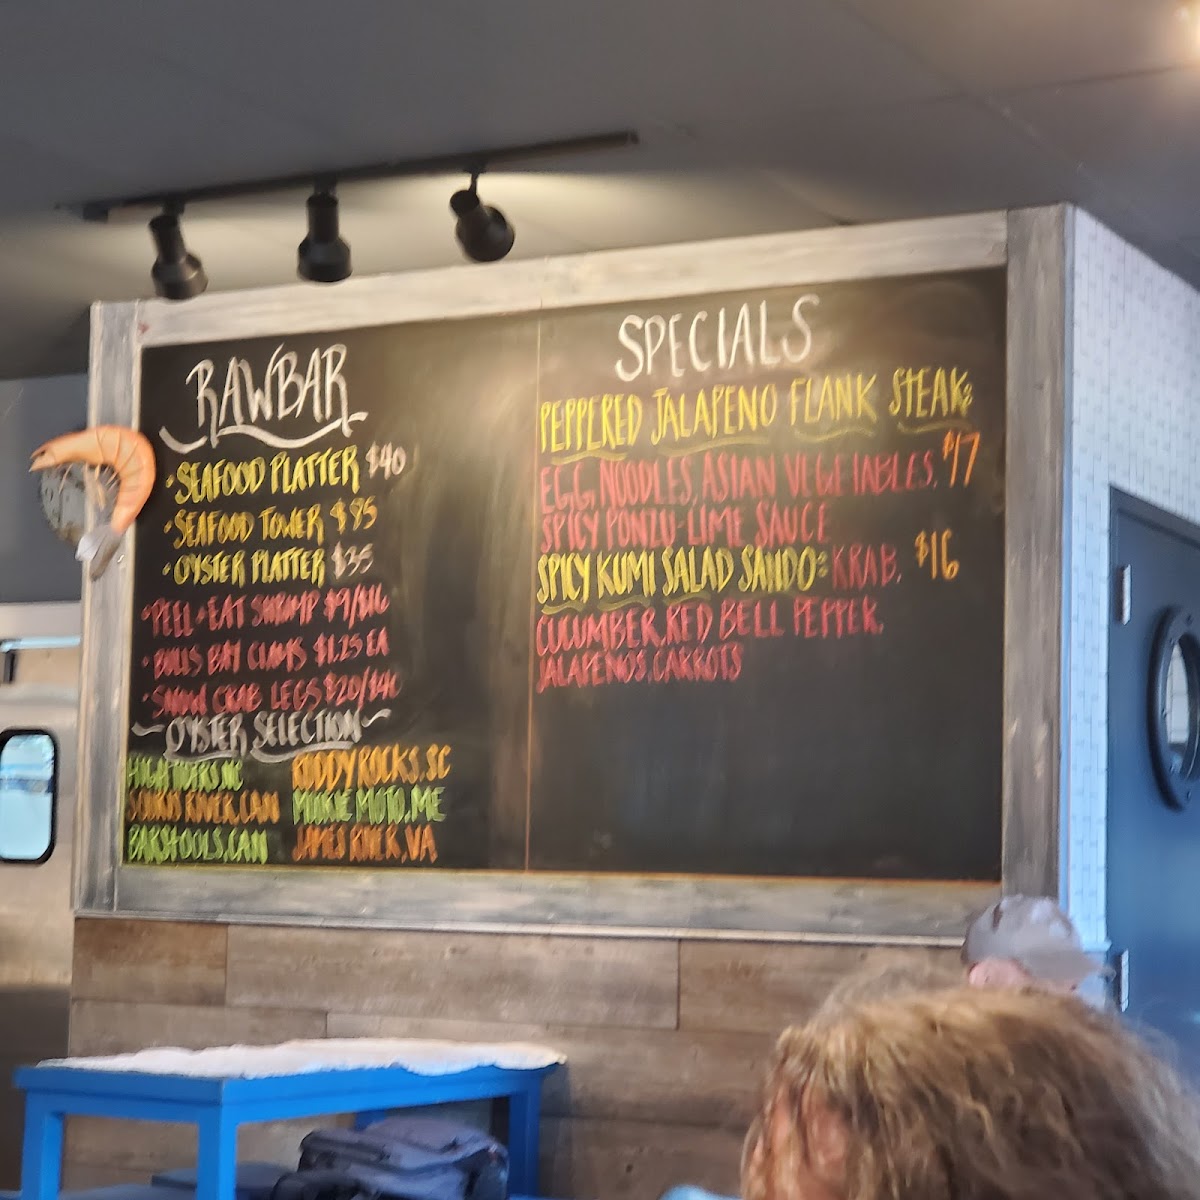 RAWBAR
• SEAFOOD PLATTER $40
• SEAFOOD TOWER $85
• OYSTER PLATTER $35
• PEEL + EAT SHRIMP $9/$16
• BULLS BAY CLAMS $1.25 EA
• SNOW CRAB LEGS $20/$40
~ OYSTER SELECTION ~
HIGH RIDERS, NC
RUDDY ROCKS, SC
RIVER, CAN
MOOKIE MOTO, ME
BARSTOOLS, CAN
JAMES RIVER, VA
SPECIALS
PEPPERED JALAPENO FLANK STEAK:
EGG NOODLES, ASIAN VEGETABLES, $17
SPICY PONZU-LIME SAUCE
SPICY KUMI SALAD SANDO: KRAB, $16
CUCUMBER, RED BELL PEPPER,
JALAPENOS, CARROTS